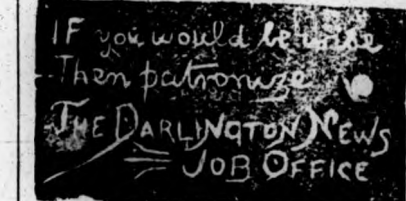 IF you would be wise
Then patronize
THE DARLINGTON NEWS
JOB OFFICE